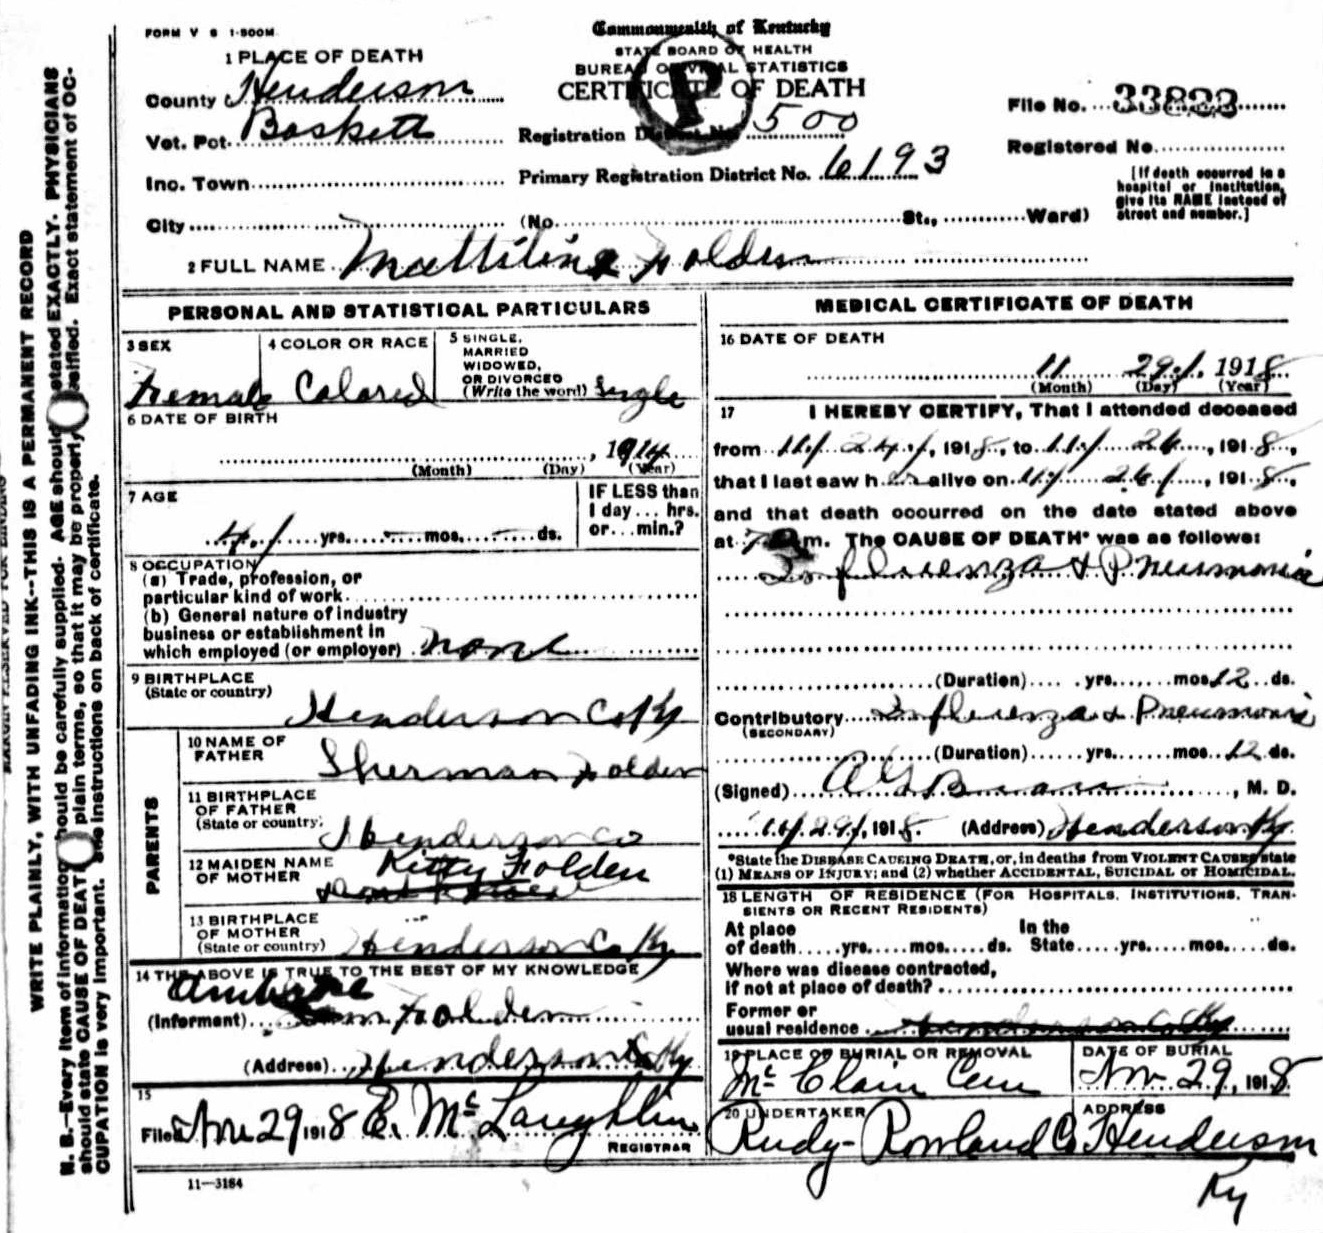 FORM V S 1-500M
Commonwealth of Kentucky
STATE BOARD OF HEALTH
BUREAU OF VITAL STATISTICS
CERTIFICATE OF DEATH
P
File No. 33823
Registered No.
[If death occurred in a hospital or institution, give its NAME instead of street and number.]
1 PLACE OF DEATH
County Henderson
Vot. Pct. Baskett
Registration District No. 500
Inc. Town
Primary Registration District No. 6193
City (No. St., Ward)
2 FULL NAME Folden
PERSONAL AND STATISTICAL PARTICULARS
3 SEX
Female
4 COLOR OR RACE
Colored
5 SINGLE, MARRIED WIDOWED, OR DIVORCED (Write the word) Single
6 DATE OF BIRTH
, 1914
(Month) (Day) (Year)
7 AGE
4 yrs. - mos. - ds.
IF LESS than 1 day ... hrs. or ... min.?
8 OCCUPATION
(a) Trade, profession, or
particular kind of work
(b) General nature of industry
business or establishment in
which employed (or employer) none
9 BIRTHPLACE
(State or country)
Henderson Co Ky
PARENTS
10 NAME OF FATHER
Sherman Folden
11 BIRTHPLACE OF FATHER
(State or country)
Henderson Co
12 MAIDEN NAME OF MOTHER
Kitty Folden
13 BIRTHPLACE OF MOTHER
(State or country) Henderson Co Ky
14 THE ABOVE IS TRUE TO THE BEST OF MY KNOWLEDGE
(Informant) Folden
(Address) Henderson Co Ky
15
Filed Nov 29 1918 E. Mc Laughlin
REGISTRAR
11-3184
MEDICAL CERTIFICATE OF DEATH
16 DATE OF DEATH
11 29 1918
(Month) (Day) (Year)
17 I HEREBY CERTIFY, That I attended deceased
from 11/ 24/, 1918, to 11/ 26, 1918,
that I last saw her alive on 11/ 26/, 1918,
and that death occurred on the date stated above
at 7 m. The CAUSE OF DEATH* was as follows:
Influenza & Pneumonia
(Duration) yrs. mos 12 ds.
Contributory Influenza & Pneumonia
(SECONDARY)
(Duration) yrs. mos 12 ds.
(Signed) , M. D.
11/29/, 1918. (Address) Henderson Ky.
*State the DISEASE CAUSING DEATH, or, in deaths from VIOLENT CAUSES state
(1) MEANS OF INJURY; and (2) whether ACCIDENTAL, SUICIDAL OR HOMICIDAL.
18 LENGTH OF RESIDENCE (FOR HOSPITALS, INSTITUTIONS, TRAN-
SIENTS OR RECENT RESIDENTS)
At place of death yrs. mos. ds.
In the State yrs. mos. ds.
Where was disease contracted,
if not at place of death?
Former or
usual residence Henderson Co Ky
19 PLACE OF BURIAL OR REMOVAL
Mc Clain Cem
DATE OF BURIAL
Nov 29, 1918
20 UNDERTAKER
Rudy-Rowland Co
ADDRESS
Henderson Ky
WRITE PLAINLY, WITH UNFADING INK--THIS IS A PERMANENT RECORD
N. B.—Every item of information should be carefully supplied. AGE should be stated EXACTLY. PHYSICIANS
should state CAUSE OF DEATH in plain terms, so that it may be properly classified. Exact statement of OC-
CUPATION is very important. See instructions on back of certificate.
MARGIN RESERVED FOR BINDING